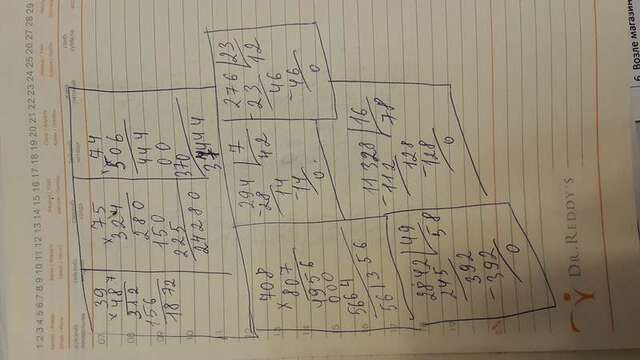 1 2 3 4 5 6 7 8 9 10 11 12 13 14 15 16 17 18 19 20 21 22 23 24 25 26 27 28 29 30 31
07
39
× 48 7
312
156
1872
75
× 324
280
150
225
24280
74
× 506
444
00
370
37444
08
09
10
11
12
708
× 807
4956
000
5664
561356
294 | 7
- 28 42
14
- 14
0.
276 | 23
- 23 12
46
- 46
0
2842 | 49
245 58
392
- 392
0
11328 | 16
- 112 78
128
- 128
0
DR.REDDY'S
6. Возле магазин